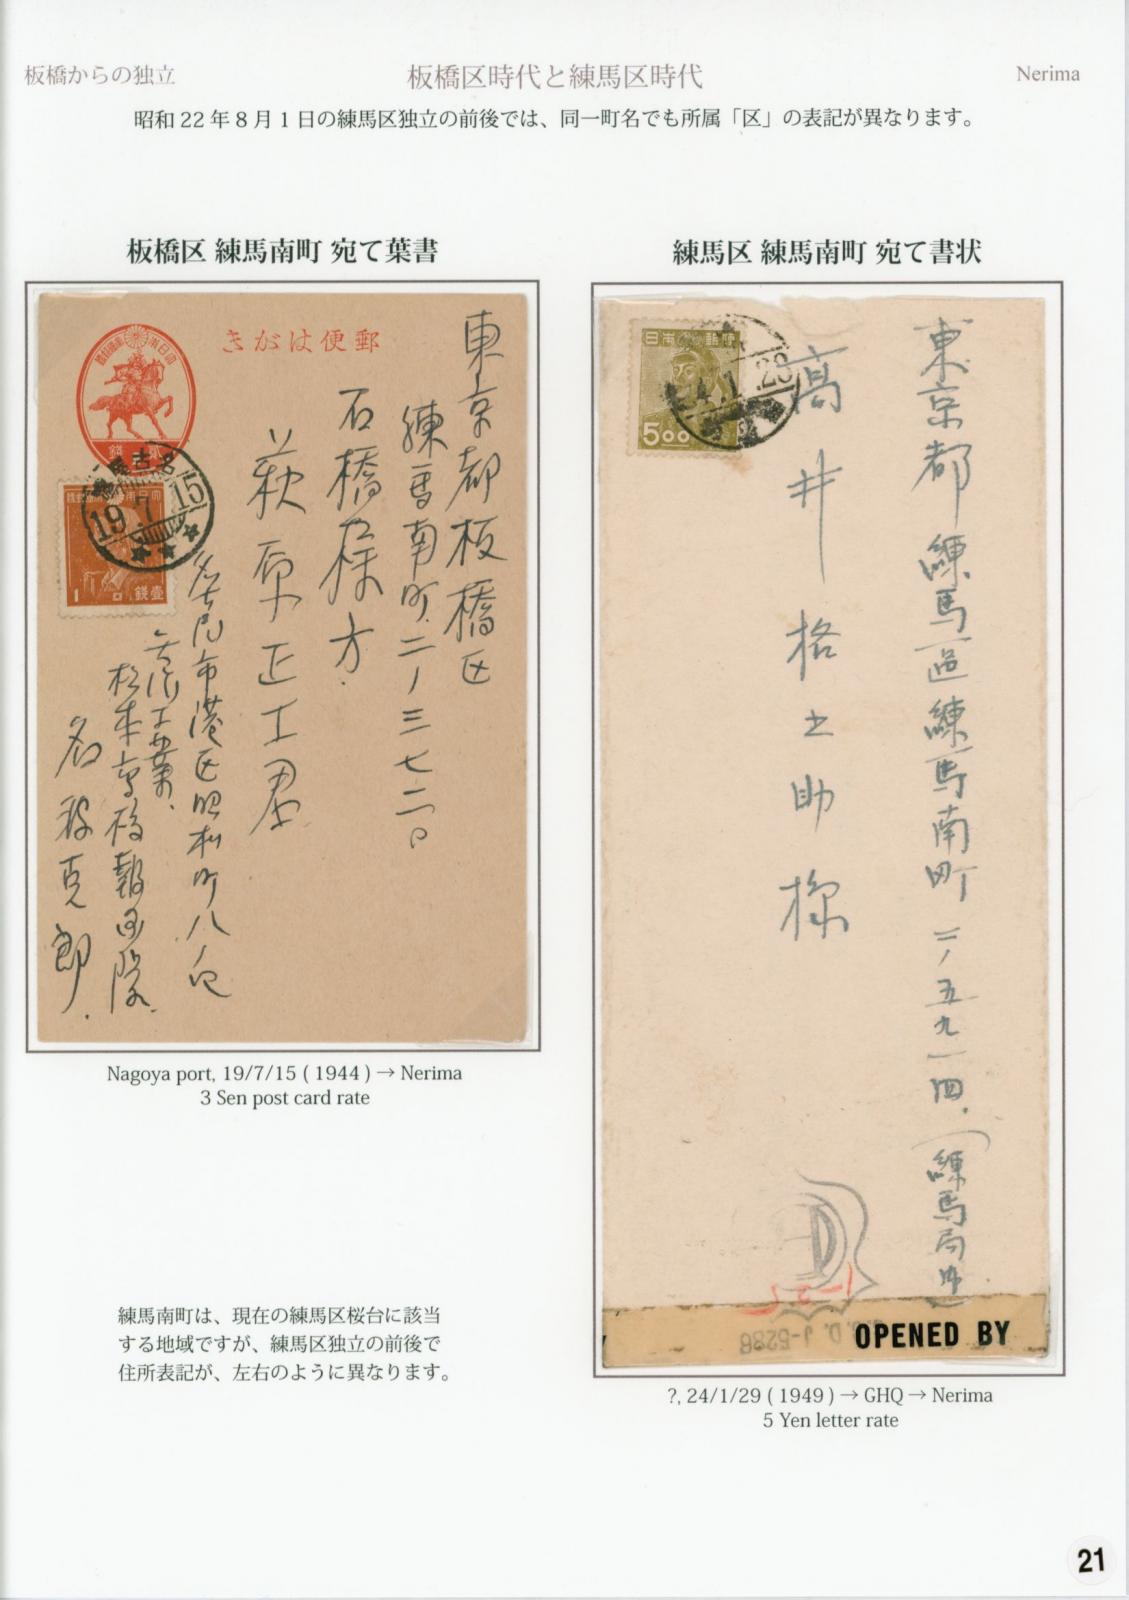 板橋からの独立
板橋区時代と練馬区時代
Nerima
昭和 22 年 8 月 1 日の練馬区独立の前後では、同一町名でも所属「区」の表記が異なります。
板橋区 練馬南町 宛て葉書
きがは便郵
東京都板橋区
練馬南町二ノ三七二〇
石橋様方
萩原正工君
名古屋市港区昭和町八ノ
名
郎
名古屋
19.7.15
1
錢壹
Nagoya port, 19/7/15 ( 1944 ) → Nerima
3 Sen post card rate
練馬南町は、現在の練馬区桜台に該当
する地域ですが、練馬区独立の前後で
住所表記が、左右のように異なります。
練馬区 練馬南町 宛て書状
日本郵便
5.00
東京都練馬區練馬南町二ノ五九一四
(練馬局
高井格之助様
D. J-5286
OPENED BY
?, 24/1/29 ( 1949 ) → GHQ → Nerima
5 Yen letter rate
21